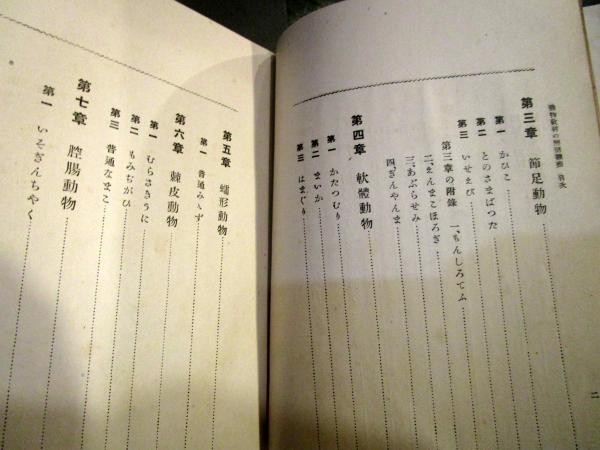 動物教材の解剖觀察 目次
第三章 節足動物
第一 かひこ
第二 とのさまばつた
第三 いせえび
第三章の附錄 一、もんしろてふ
二、えんまこほろぎ
三、あぶらぜみ
四、ぎんやんま
第四章 軟體動物
第一 かたつむり
第二 まいか
第三 はまぐり
二
第五章 蠕形動物
第一 普通みゝず
第六章 棘皮動物
第一 むらさきうに
第二 もみぢがひ
第三 普通なまこ
第七章 腔腸動物
第一 いそぎんちやく